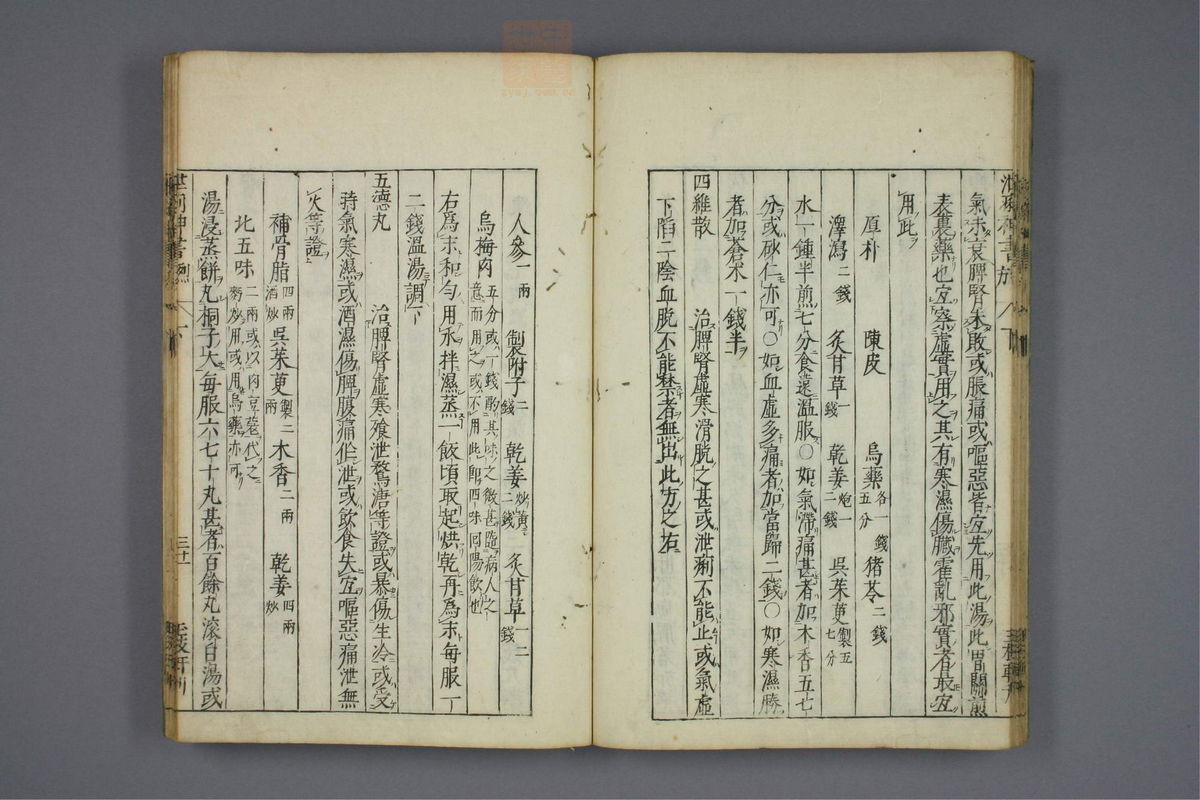 氣未衰脾腎未敗或脹痛或嘔惡皆宜先用此湯此胃關煎
表裏藥也宜察虛實用之其有寒濕傷臟霍亂邪實者最宜
用此
厚朴 陳皮 烏藥各一錢五分 豬苓二錢
澤瀉二錢 炙甘草一錢 乾姜炮一二錢 吳茱萸製五七分
水一鍾半煎七分食遠溫服〇如氣滯痛甚者加木香五七
分或砂仁亦可〇如血虛多痛者加當歸二錢〇如寒濕勝
者加蒼朮一錢半
四維散 治脾腎虛寒滑脫之甚或泄痢不能止或氣虛
下陷二陰血脫不能禁者無出此方之右
人參一兩 製附子二錢 乾姜炒黃二錢 炙甘草一二錢
烏梅肉五分或一錢酌其味之微甚臨病人之意而用之或不用此即四味回陽飲也
右爲末和勻用水拌濕蒸一飯頃取起烘乾再為末每服一
二錢溫湯調下
五德丸 治脾腎虛寒飧泄鶩溏等證或暴傷生冷或受
時氣寒濕或酒濕傷脾腹痛作泄或飲食失宜嘔惡痛泄無
火等證
補骨脂四兩酒炒 吳茱萸製二兩 木香二兩 乾姜四兩炒
北五味二兩或以肉豆蔻代之麪炒用或用烏藥亦可
湯浸蒸餅丸桐子大每服六七十丸甚者百餘丸滾白湯或
三十一